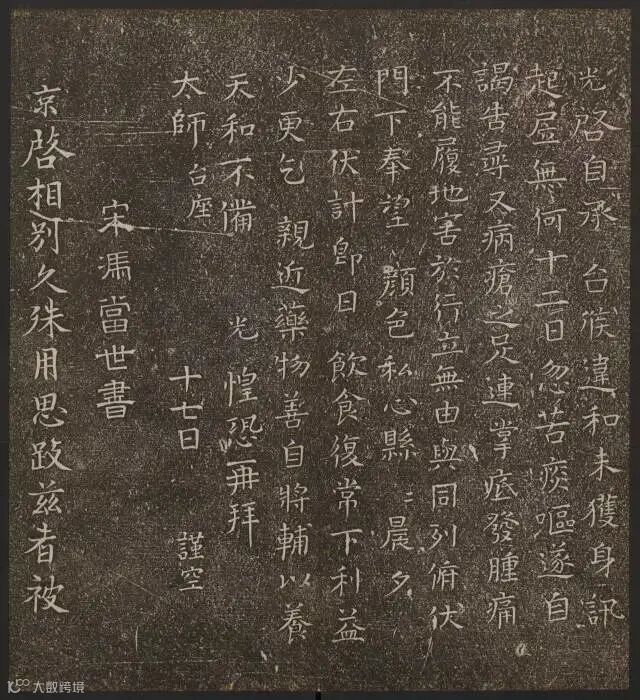 光啓自承 台候違和未獲身訊
起居無何十二日忽苦痰嘔遂自
謁告尋又病瘡之足連掌底發腫痛
不能履地害於行立無由與同列俯伏
門下奉望 顏色私心縣〻晨夕
左右伏計即日 飲食復常下利益
少更乞 親近藥物善自將輔以養
天和不備 光 惶恐再拜
太師 台座 十七日 謹空
宋馮當世書
京啓相別久殊用思跂茲者被
大数跨境